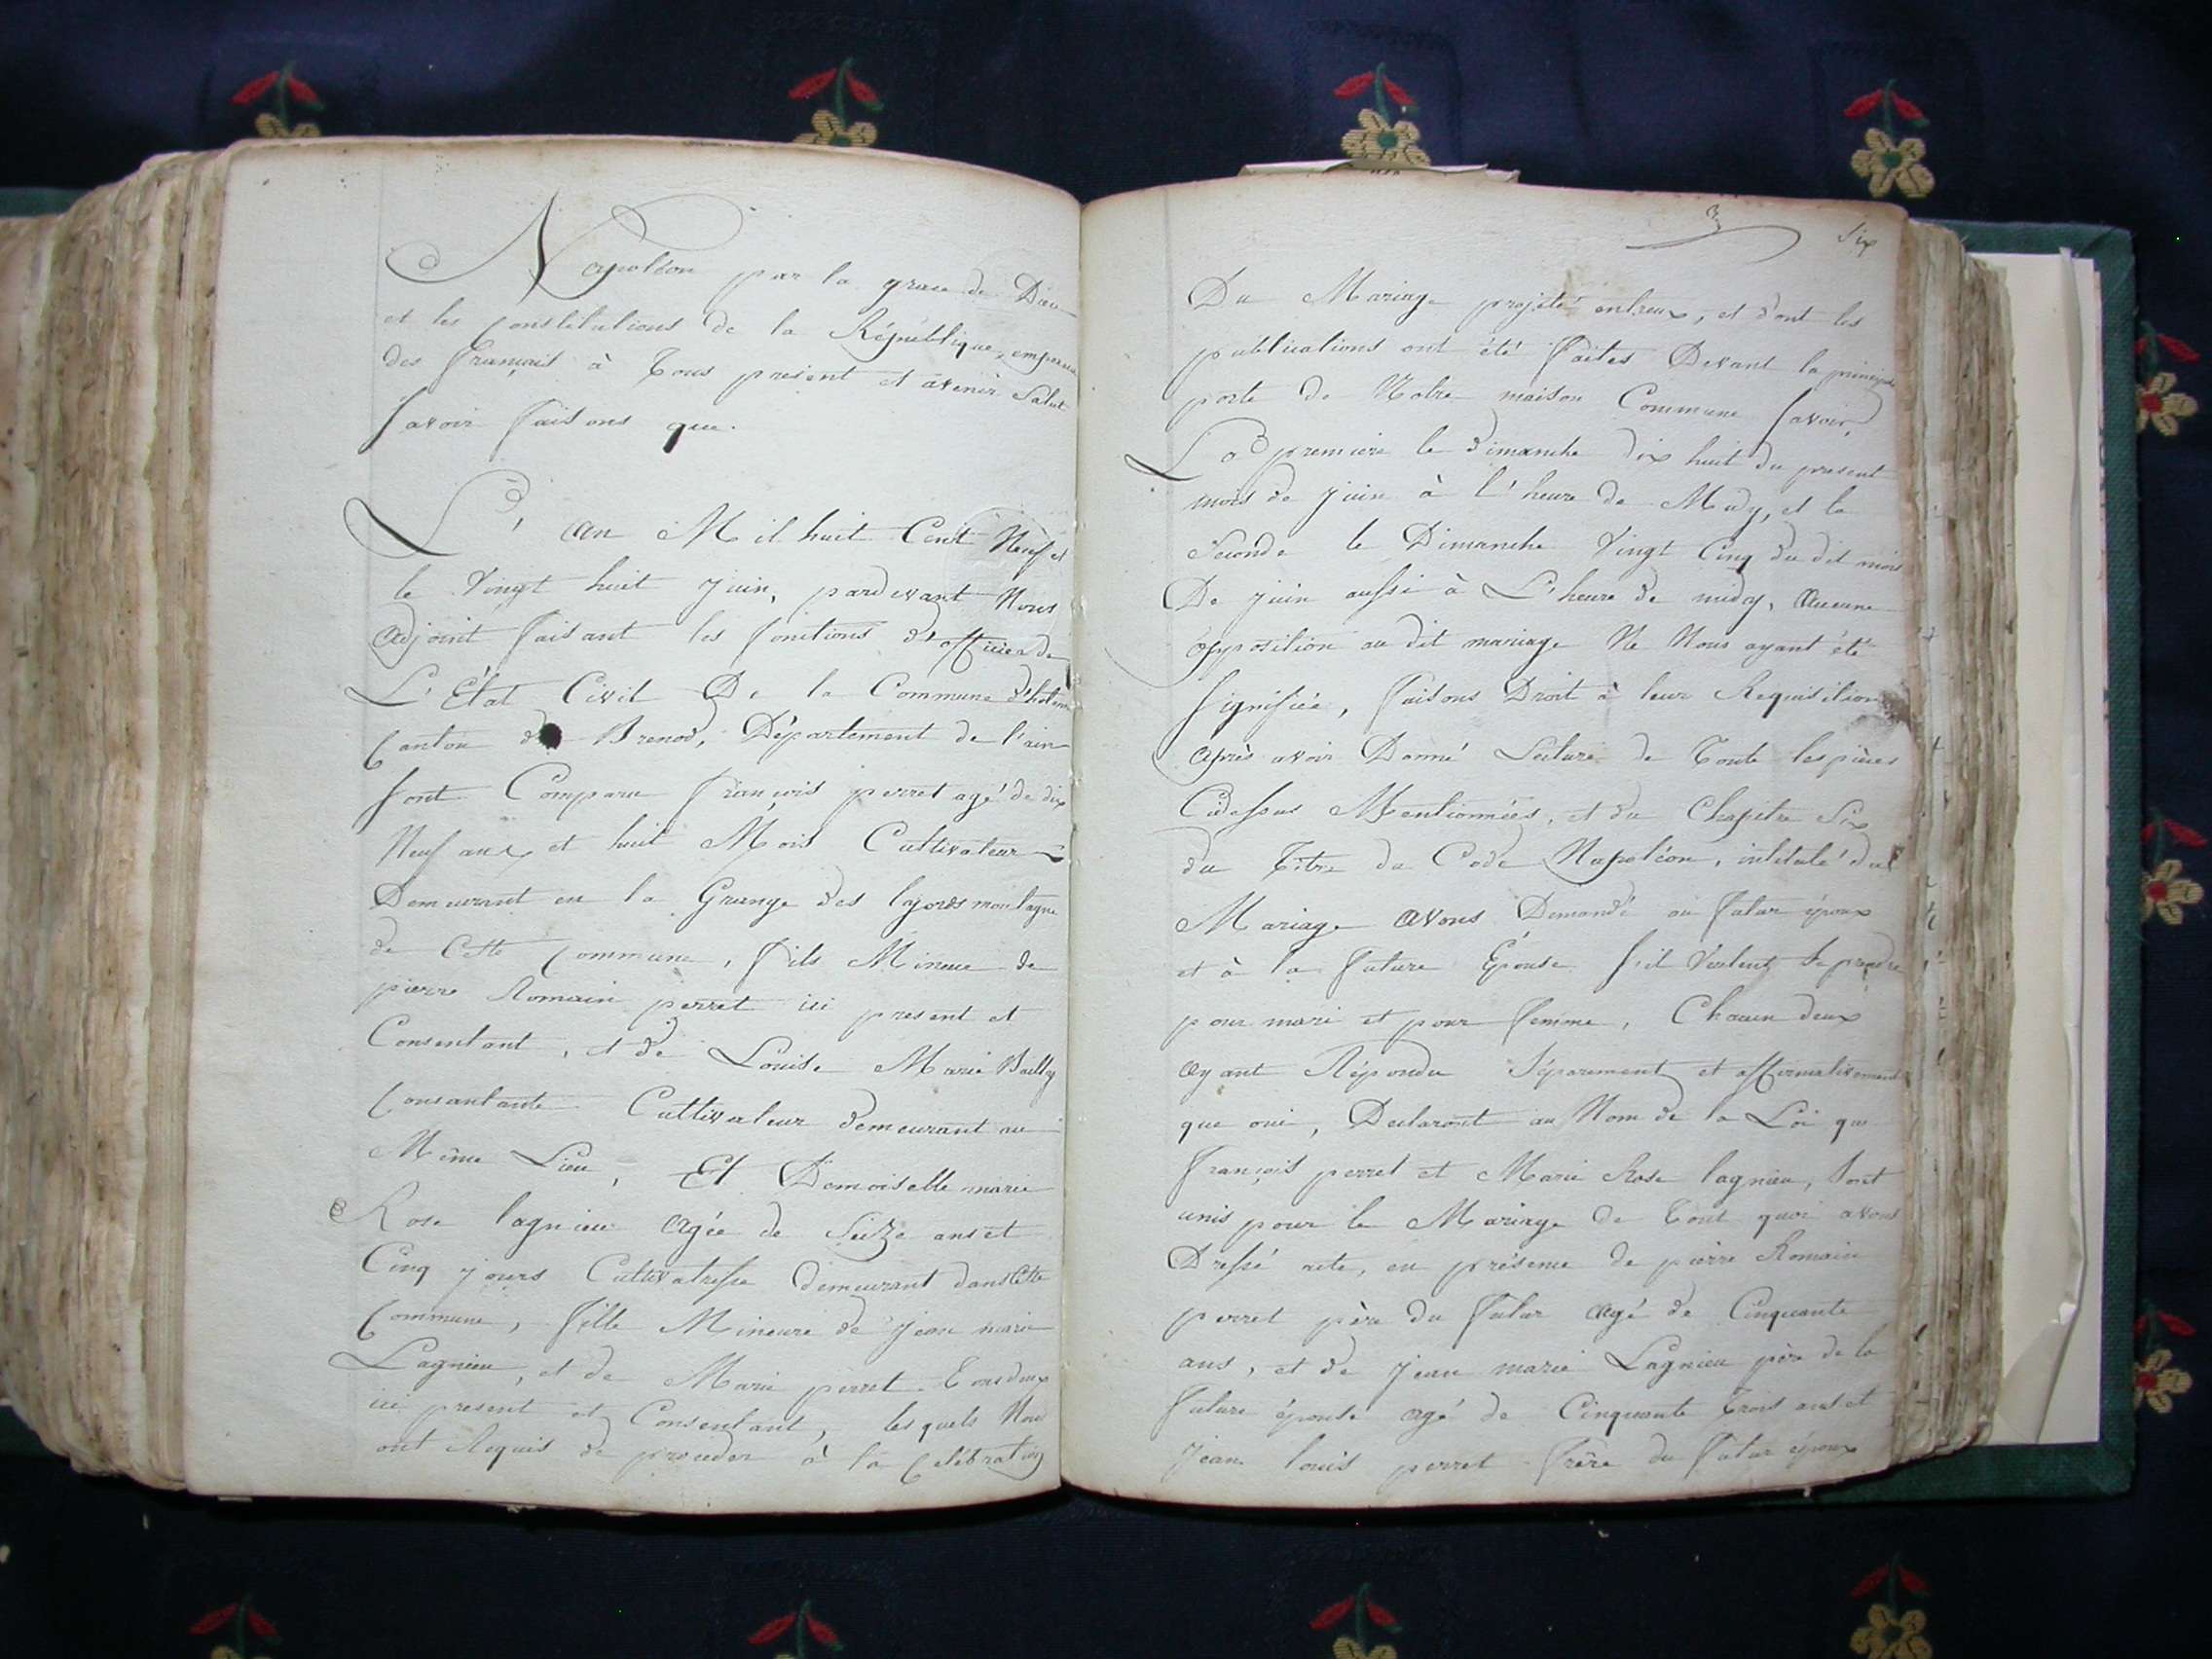 Napoléon par la grace de Dieu
et les Constitutions de la République, empereur
des français à Tous present et avenir Salut
Savoir faisons que.
L'an Mil huit Cent Neuf et
le Vingt huit juin, pardevant Nous
adjoint faisant les fonctions d'officier de
L'État Civil De la Commune
Canton de Brenod, Département de l'ain
Sont Comparu françois perret agé de dix
Neuf ans et huit Mois Cultivateur
Demeurant en la Grange des montagne
de Cette Commune, fils Mineur de
pierre Romain perret ici present et
Consentant, et de Louise Marie Bailly
Consantante Cultivateur demeurant au
Même Lieu, Et Demoiselle marie
Rose lagnieu agée de Seize ans et
Cinq jours Cultivatresse demeurant dans Cette
Commune, fille Mineure de jean marie
Lagnieu, et de Marie perret Tous deux
ici present et Consentant, les quels Nous
ont Requis de proceder à la Célébration
Six
Du Mariage projeté entreux, et dont les
publications ont été faites Devant la principale
porte de Notre maison Commune Savoir,
La premiere le dimanche dix huit du present
mois de juin à l'heure de Midy, et la
Seconde le Dimanche Vingt Cinq du dit mois
De juin aussi à L'heure de midy, aucune
opposition au dit mariage Ne Nous ayant été
Signifiée, faisons Droit à leur Requisition
après avoir Donné Lecture de Toute les pièces
Cidessus Mentionnées, et du Chapitre Six
du Titre du Code Napoléon, intitulé du
Mariage avons Demandé au futur époux
et à la future Épouse s'il Veulent Se prendre
pour mari et pour femme, Chacun deux
ayant Répondu Séparement et affirmativement
que oui, Declaront au Nom de la Loi que
françois perret et Marie Rose lagnieu, Sont
unis pour le Mariage De Tout quoi avons
Dressé acte, en présence de pierre Romain
perret père du futur agé de Cinquante
ans, et de jean marie Lagnieu père de la
future épouse agé de Cinquante Trois ans et
jean louis perret frère du futur époux